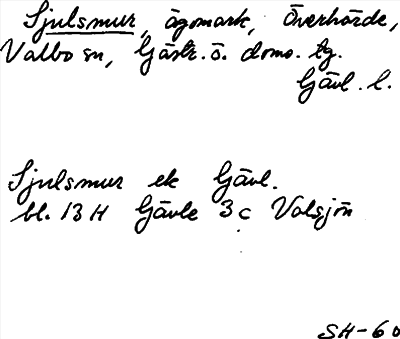 Sjulsmur, ägomark, Överhärde,
Valbo sn, Gästr. ö. doms. tg.
Gävl. l.
Sjulsmur ek Gävl.
bl. 13 H Gävle 3c Valsjön
SH-60